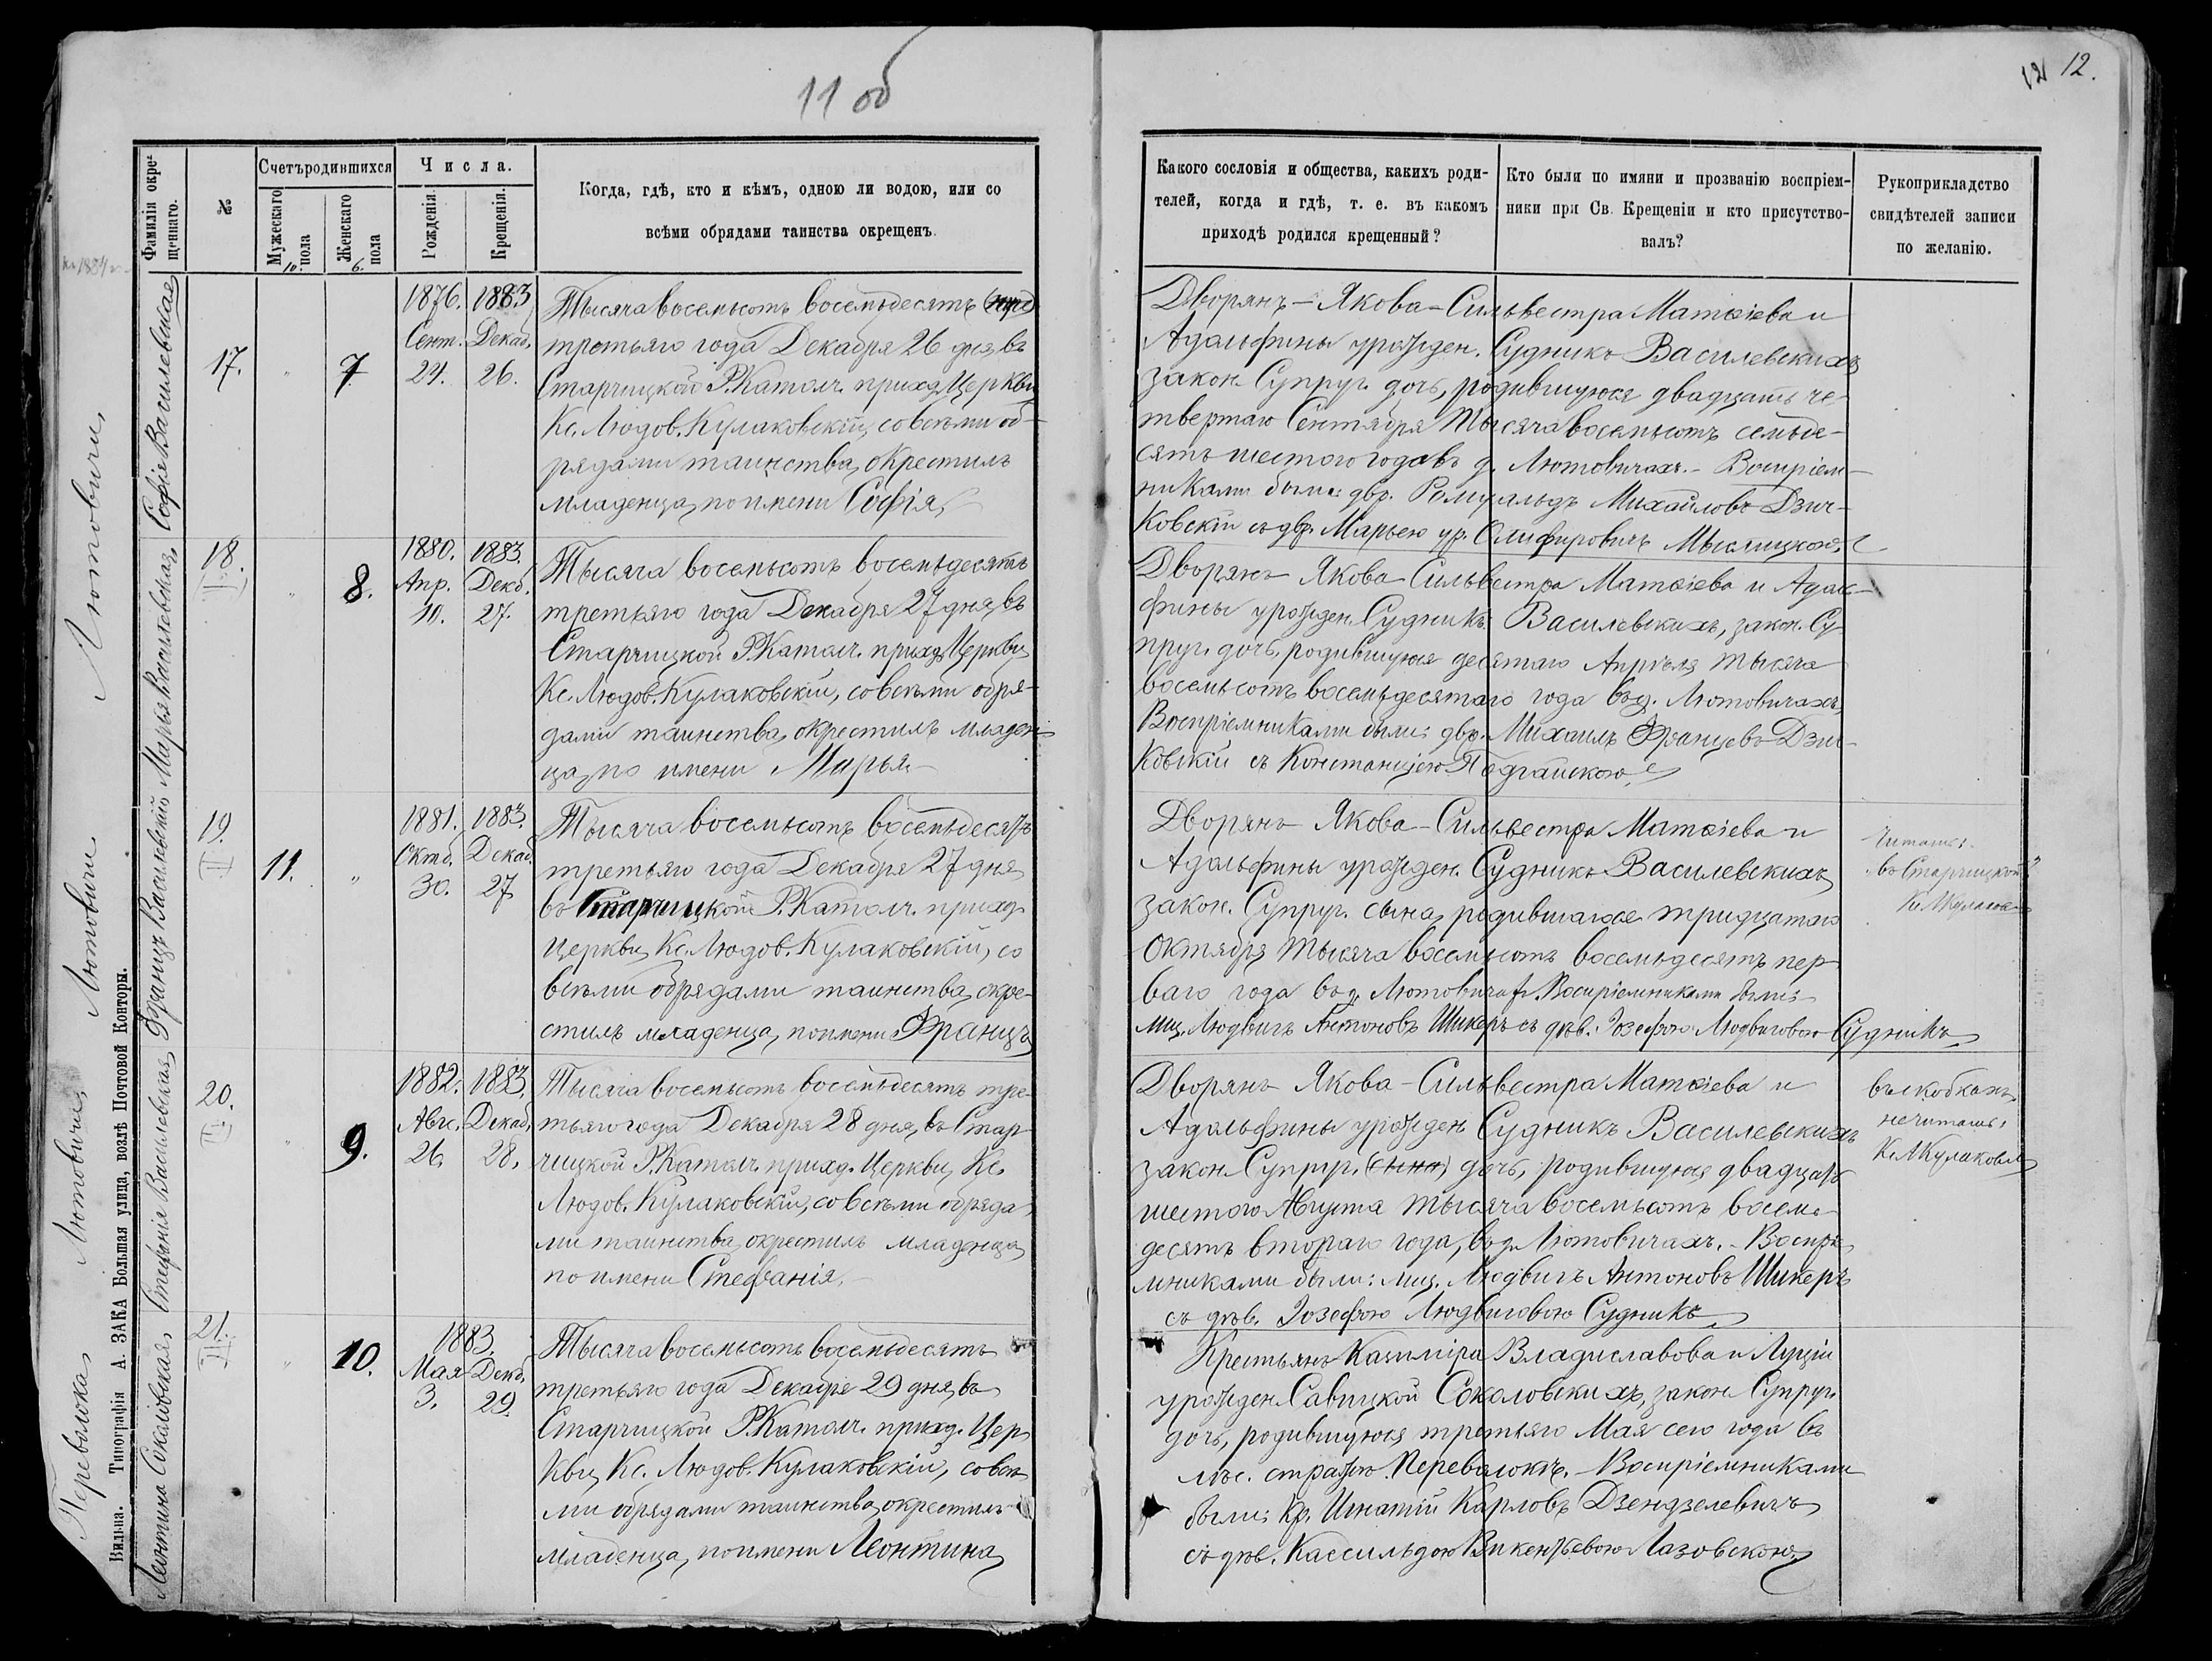 11 об
12 12.
Фамилія окре-
щеннаго.
№
Счетъ родившихся
Мужескаго
пола
10.
Женскаго
пола
6.
Числа.
Рожденія.
Крещенія.
Когда, гдѣ, кто и кѣмъ, одною ли водою, или со
всѣми обрядами таинства окрещенъ.
Какого сословія и общества, какихъ роди-
телей, когда и гдѣ, т. е. въ какомъ
приходѣ родился крещенный?
Кто были по имяни и прозванію воспріем-
ники при Св. Крещеніи и кто присутство-
валъ?
Рукоприкладство
свидѣтелей записи
по желанію.
Лютовичи,
Софія Василевская
17.
"
7
1876.
Сент.
24.
1883
Декаб.
26.
Тысяча восемьсотъ восемьдесятъ
третьяго года Декабря 26 дня, въ
Старчицкой Р. Катол. приход. Церкви
Кс. Людов. Кулаковскій, со всѣми об-
рядами таинства, окрестилъ
младенца, по имени Софія,
Дворянъ – Якова – Сильвестра Матѳіева и
Адольфины урожден. Судникъ Василевскихъ
закон. Супруг. дочь, родившуюся двадцать че-
твертаго Сентября Тысяча восемьсотъ семьде-
сятъ шестого года въ д. Лютовичахъ. – Воспріем-
никами были: двр. Ромуальдъ Михайловъ Дзич-
ковскій съ двр. Марьею ур. Олифировичъ Мыслицкою,
Лютовичи
Марья Василевская,
18.
I
"
8.
1880.
Апр.
10.
1883.
Декб.
27.
Тысяча восемьсотъ восемьдесятъ
третьяго года Декабря 27 дня, въ
Старчицкой Р. Катол. приход. Церкви
Кс. Людов. Кулаковскій, со всѣми обря-
дами таинства, окрестилъ младен-
ца, по имени Марья
Дворянъ Якова Сильвестра Матѳіева и Адоль-
фины урожден. Судникъ Василевскихъ, закон. Су-
пруг. дочь, родившуюся десятаго Апрѣля тысяча
восемьсотъ восемьдесятаго года въ д. Лютовичахъ,
Воспріемниками были: двр. Михаилъ Францевъ Дзич-
ковскій съ Констанціею Подгайскою,
Францъ Василевскій,
19.
II
11.
"
1881.
Октб.
30.
1883.
Декаб.
27
Тысяча восемьсотъ восемьдесятъ
третьяго года Декабря 27 дня,
въ Старчицкой Р. Катол. приход.
Церкви, Кс. Людов. Кулаковскій, со
всѣми обрядами таинства, окре-
стилъ младенца, по имени Францъ
Дворянъ Якова – Сильвестра Матѳіева и
Адольфины урожден. Судникъ Василевскихъ
закон. Супруг. сына, родившагося тридцатаго
Октября Тысяча восемьсотъ восемьдесятъ пер-
ваго года въ д. Лютовичахъ. Воспріемниками были:
мщ. Людвигъ Антоновъ Шикеръ съ дѣв. Іозефою Людвиговою Судникъ
Читать:
въ Старчицкой
Лютовичи,
Стефанія Василевская
20.
II
"
9.
1882.
Авг.
26.
1883.
Декаб.
28.
Тысяча восемьсотъ восемьдесятъ тре-
тьяго года Декабря 28 дня, въ Стар-
чицкой Р. Катол. приход. Церкви, Кс.
Людов. Кулаковскій, со всѣми обряда-
ми таинства, окрестилъ младенца
по имени Стефанія,
Дворянъ Якова – Сильвестра Матѳіева и
Адольфины урожден Судникъ Василевскихъ
закон. Супруг. (сына) дочь, родившуюся двадцать
шестого Августа Тысяча восемьсотъ восемь-
десятъ втораго года, въ д. Лютовичахъ. – Воспріе-
мниками были: мщ. Людвигъ Антоновъ Шикеръ
съ дѣв. Іозефою Людвиговою Судникъ
въ скобкахъ
не читать:
Кс. Л Кулаковск
Перевалока
Леонтина Соколовская,
21.
III
"
10.
1883.
Мая
3.
Декб.
29.
Тысяча восемьсотъ восемьдесятъ
третьяго года Декабря 29 дня, въ
Старчицкой Р. Катол. приход. Цер-
кви, Кс. Людов. Кулаковскій, со всѣ-
ми обрядами таинства, окрестилъ
младенца, по имени Леонтина
Крестьянъ Казиміра Владиславова и Луціи
урожден Савицкой Соколовскихъ, закон. Супруг.
дочь, родившуюся третьяго Мая сего года въ
лѣс. стражѣ Перевалокъ. – Воспріемниками
были: Кр. Игнатій Карловъ Дзендзелевичъ
съ дѣв. Кассильдою Викентьевою Лазовскою,
Вильна. Типографія А. ЗАКА Большая улица, возлѣ Почтовой Конторы.